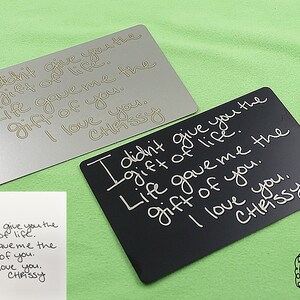 didn't give you the
gift of life.
Life gave me the
gift of you.
I love you.
CHRISSY
I didn't give you the
gift of life.
Life gave me the
gift of you.
I love you.
CHRISSY
give you the
of life.
gave me the
of you.
love you.
CHRISSY